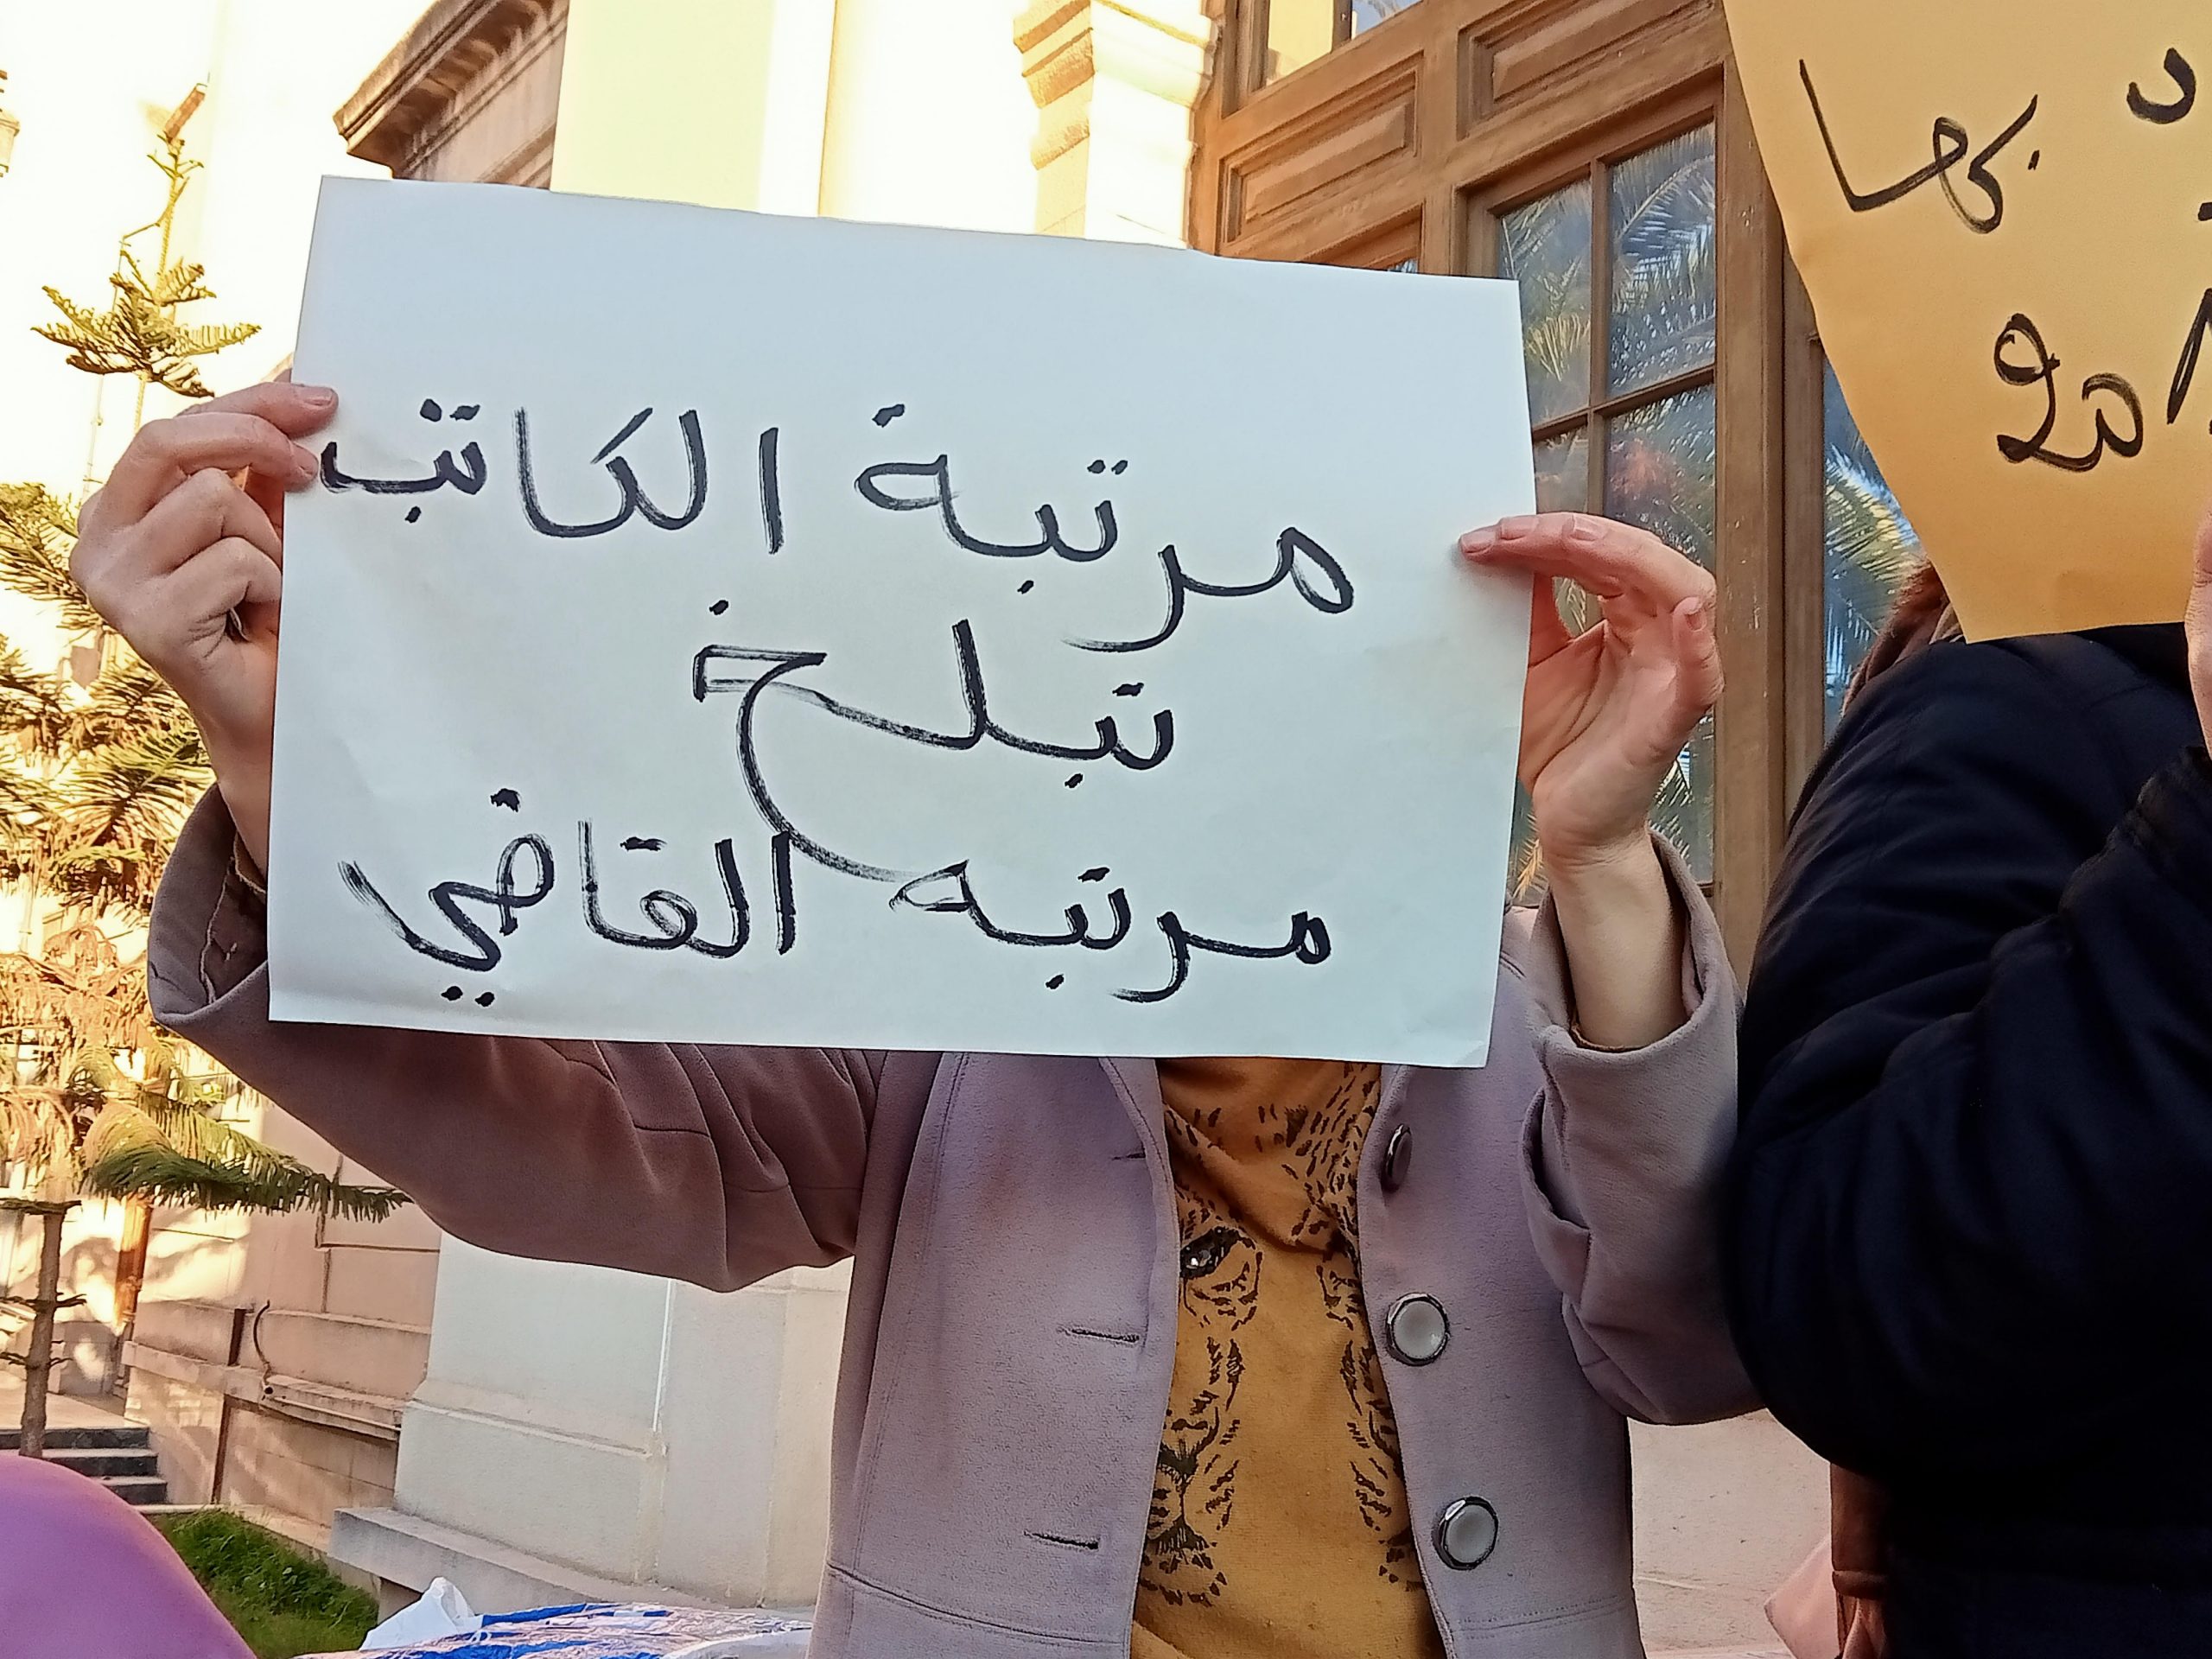 مرتبة الكاتب
تبلغ
مرتبه القاضي
بها